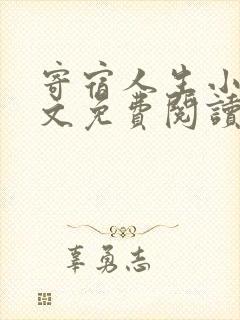 寄宿人生小
文免費閱讀
辜勇志